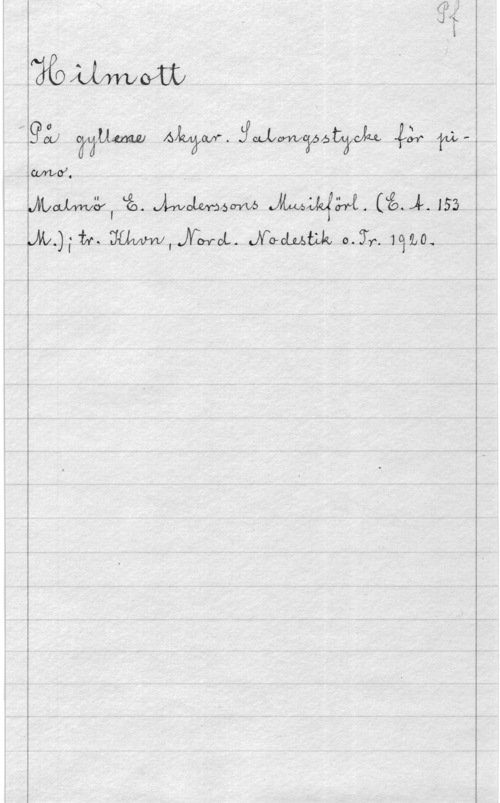 Pf
Hilmott
På gyllene skyar. Salongsstycke för pi-
ano.
Malmö, E. Anderssons Musikförl. (E. A. 153
M.); tr. Khvn, Nord. Nodestik o. Tr. 1920.